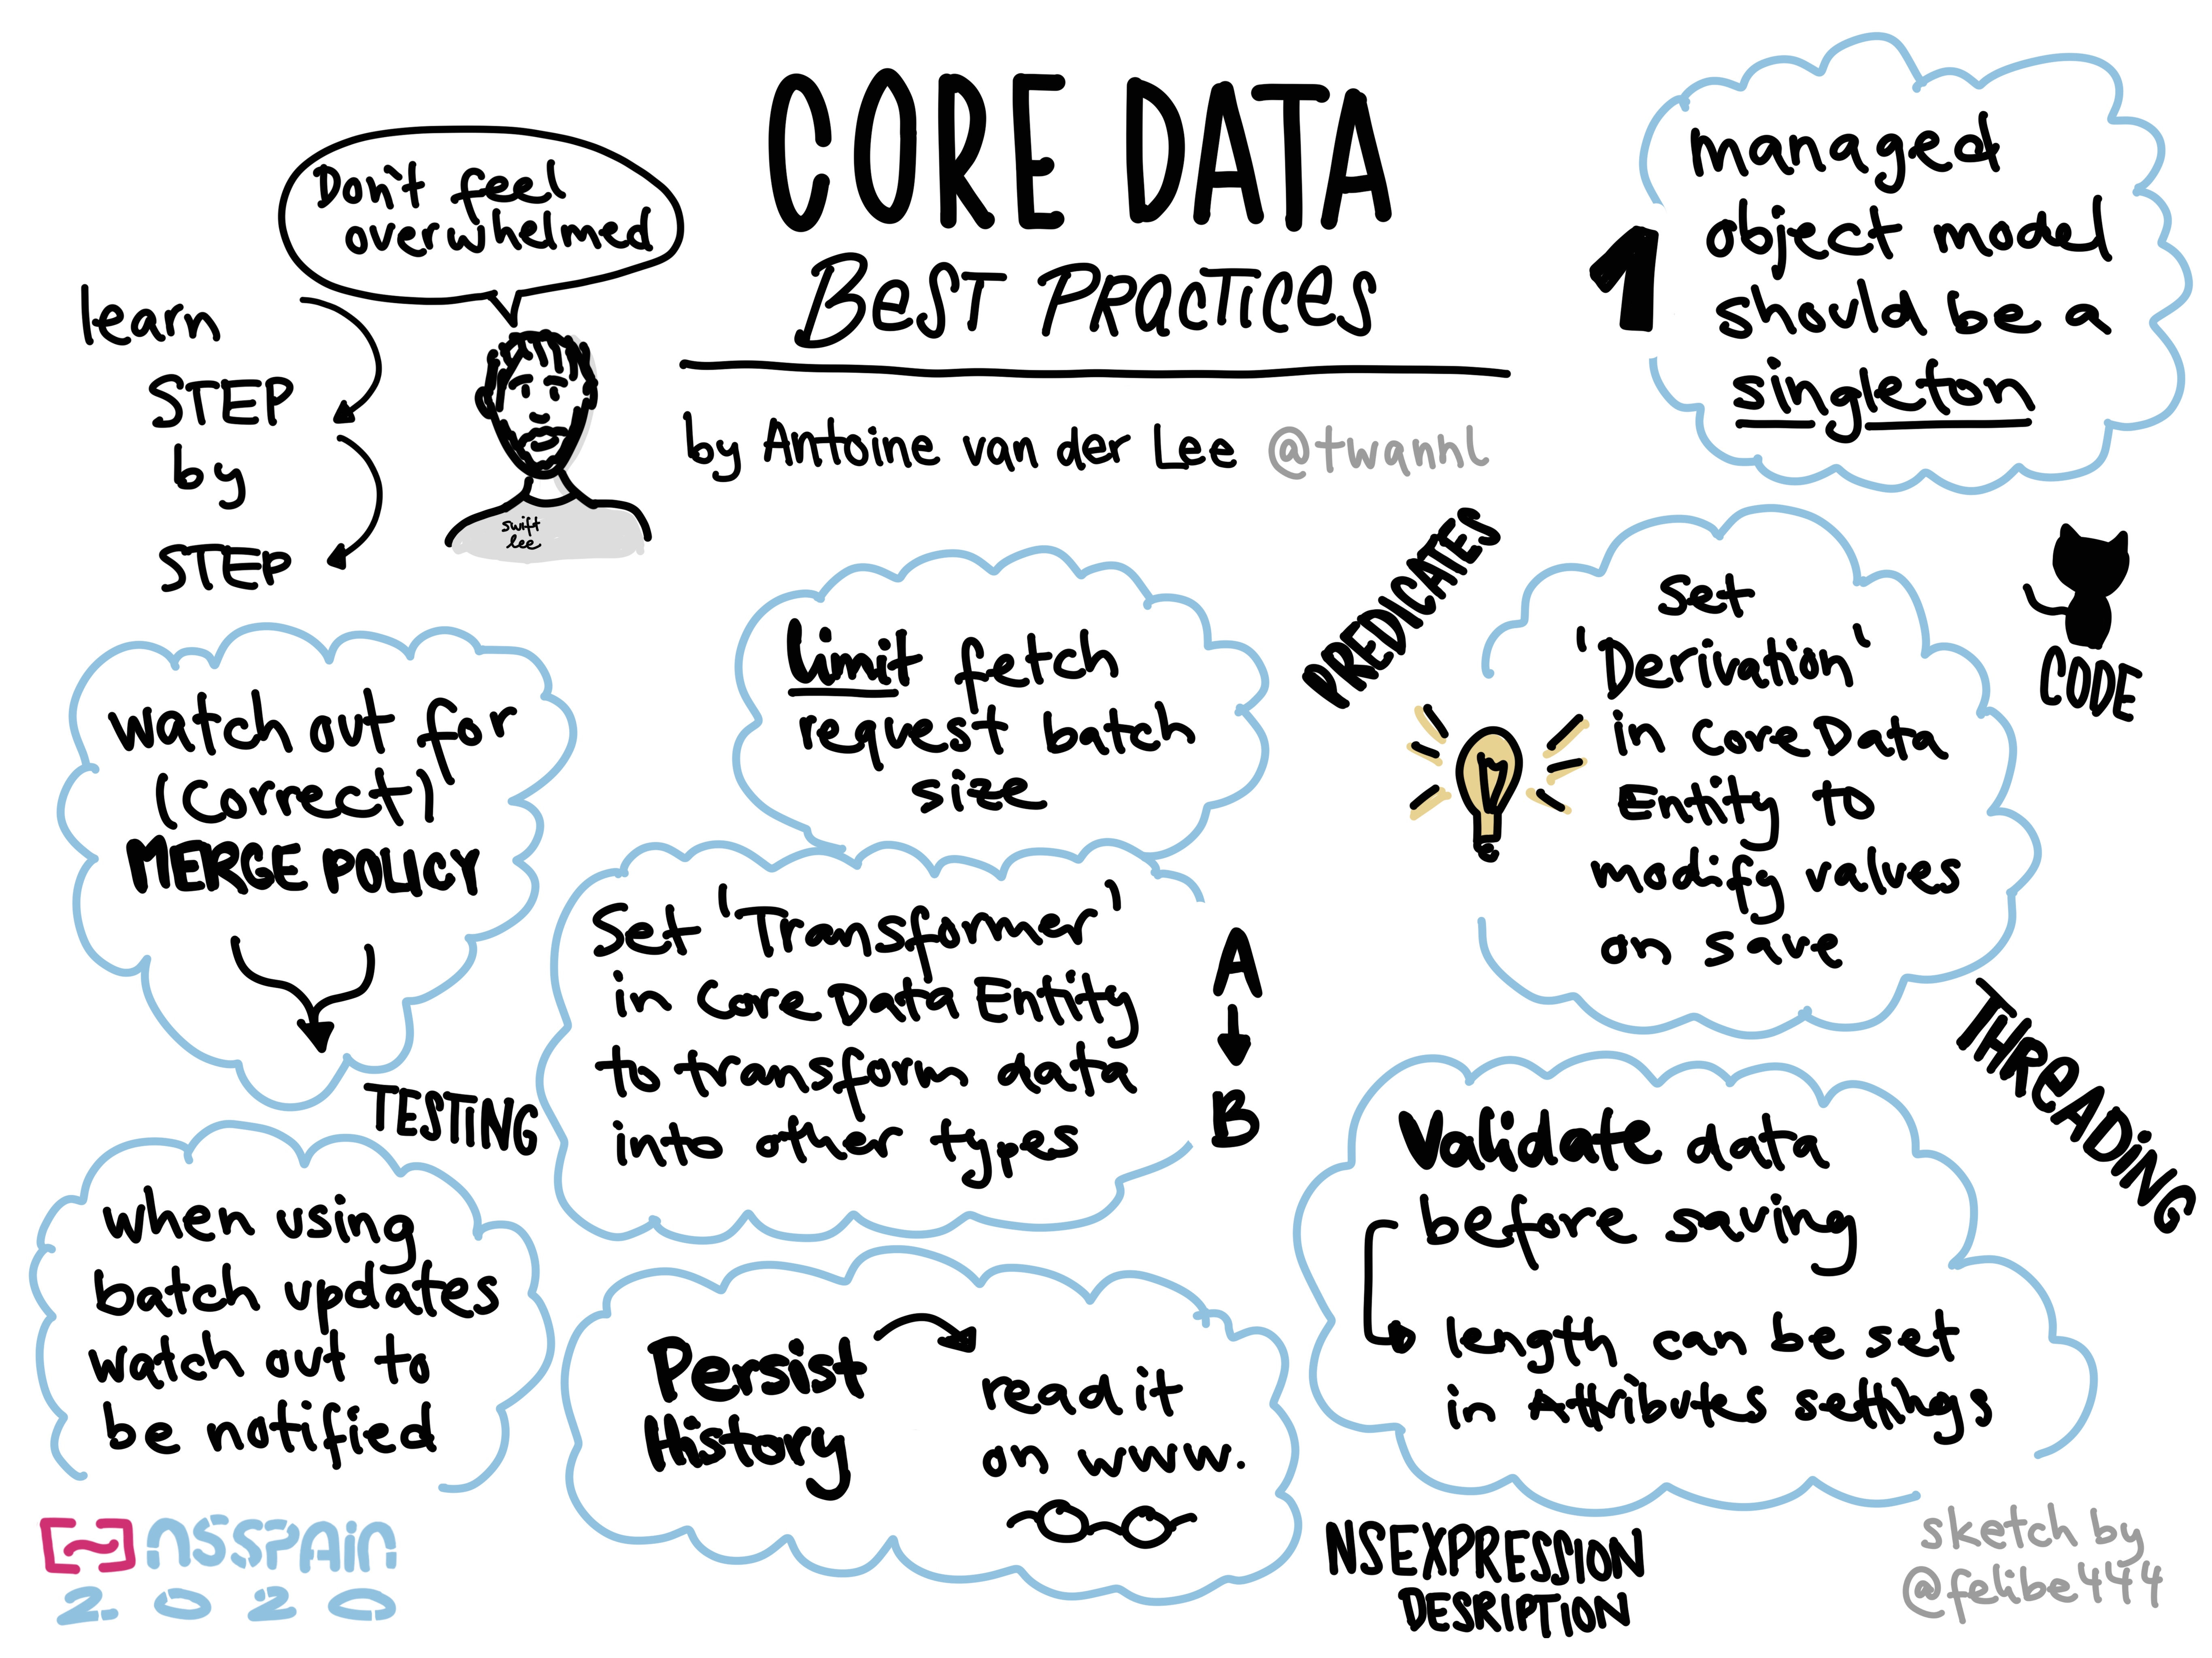 CORE DATA
BEST PRACTICES
by Antoine van der Lee @twannl
Don't feel
overwhelmed
learn
STEP
by
STEP
swift
lee
1
managed
object model
should be a
singleton
PREDICATES
Set
'Derivation'
in CoreData
Entity to
modify values
on save
CODE
Limit fetch
request batch
size
watch out for
(correct)
MERGE POLICY
Set 'Transformer'
in Core Data Entity
to transform data
into other types
A
B
THREADING
TESTING
Validate data
before saving
length can be set
in Attributes settings
when using
batch updates
watch out to
be notified
Persist
History
read it
on www.
NSSPAIN
2020
NSEXPRESSION
DESRIPTION
sketch by
@felibe444